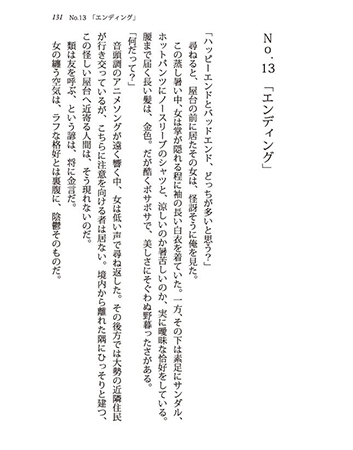 131　No.13　「エンディング」
No.13　「エンディング」
「ハッピーエンドとバッドエンド、どっちが多いと思う？」
尋ねると、屋台の前に居たその女は、怪訝そうに俺を見た。
この蒸し暑い中、女は掌が隠れる程に袖の長い白衣を着ていた。一方、その下は素足にサンダル、
ホットパンツにノースリーブのシャツと、涼しいのか暑苦しいのか、実に曖昧な恰好をしている。
腰まで届く長い髪は、金色。だが酷くボサボサで、美しさにそぐわぬ野暮ったさがある。
「何だって？」
音頭調のアニメソングが遠く響く中、女は低い声で尋ね返した。その後方では大勢の近隣住民
が行き交っているが、こちらに注意を向ける者は居ない。境内から離れた隅にひっそりと建つ、
この怪しい屋台へ近寄る人間は、そう現れないのだ。
類は友を呼ぶ、という諺は、将に金言だ。
女の纏う空気は、ラフな格好とは裏腹に、陰鬱そのものだ。